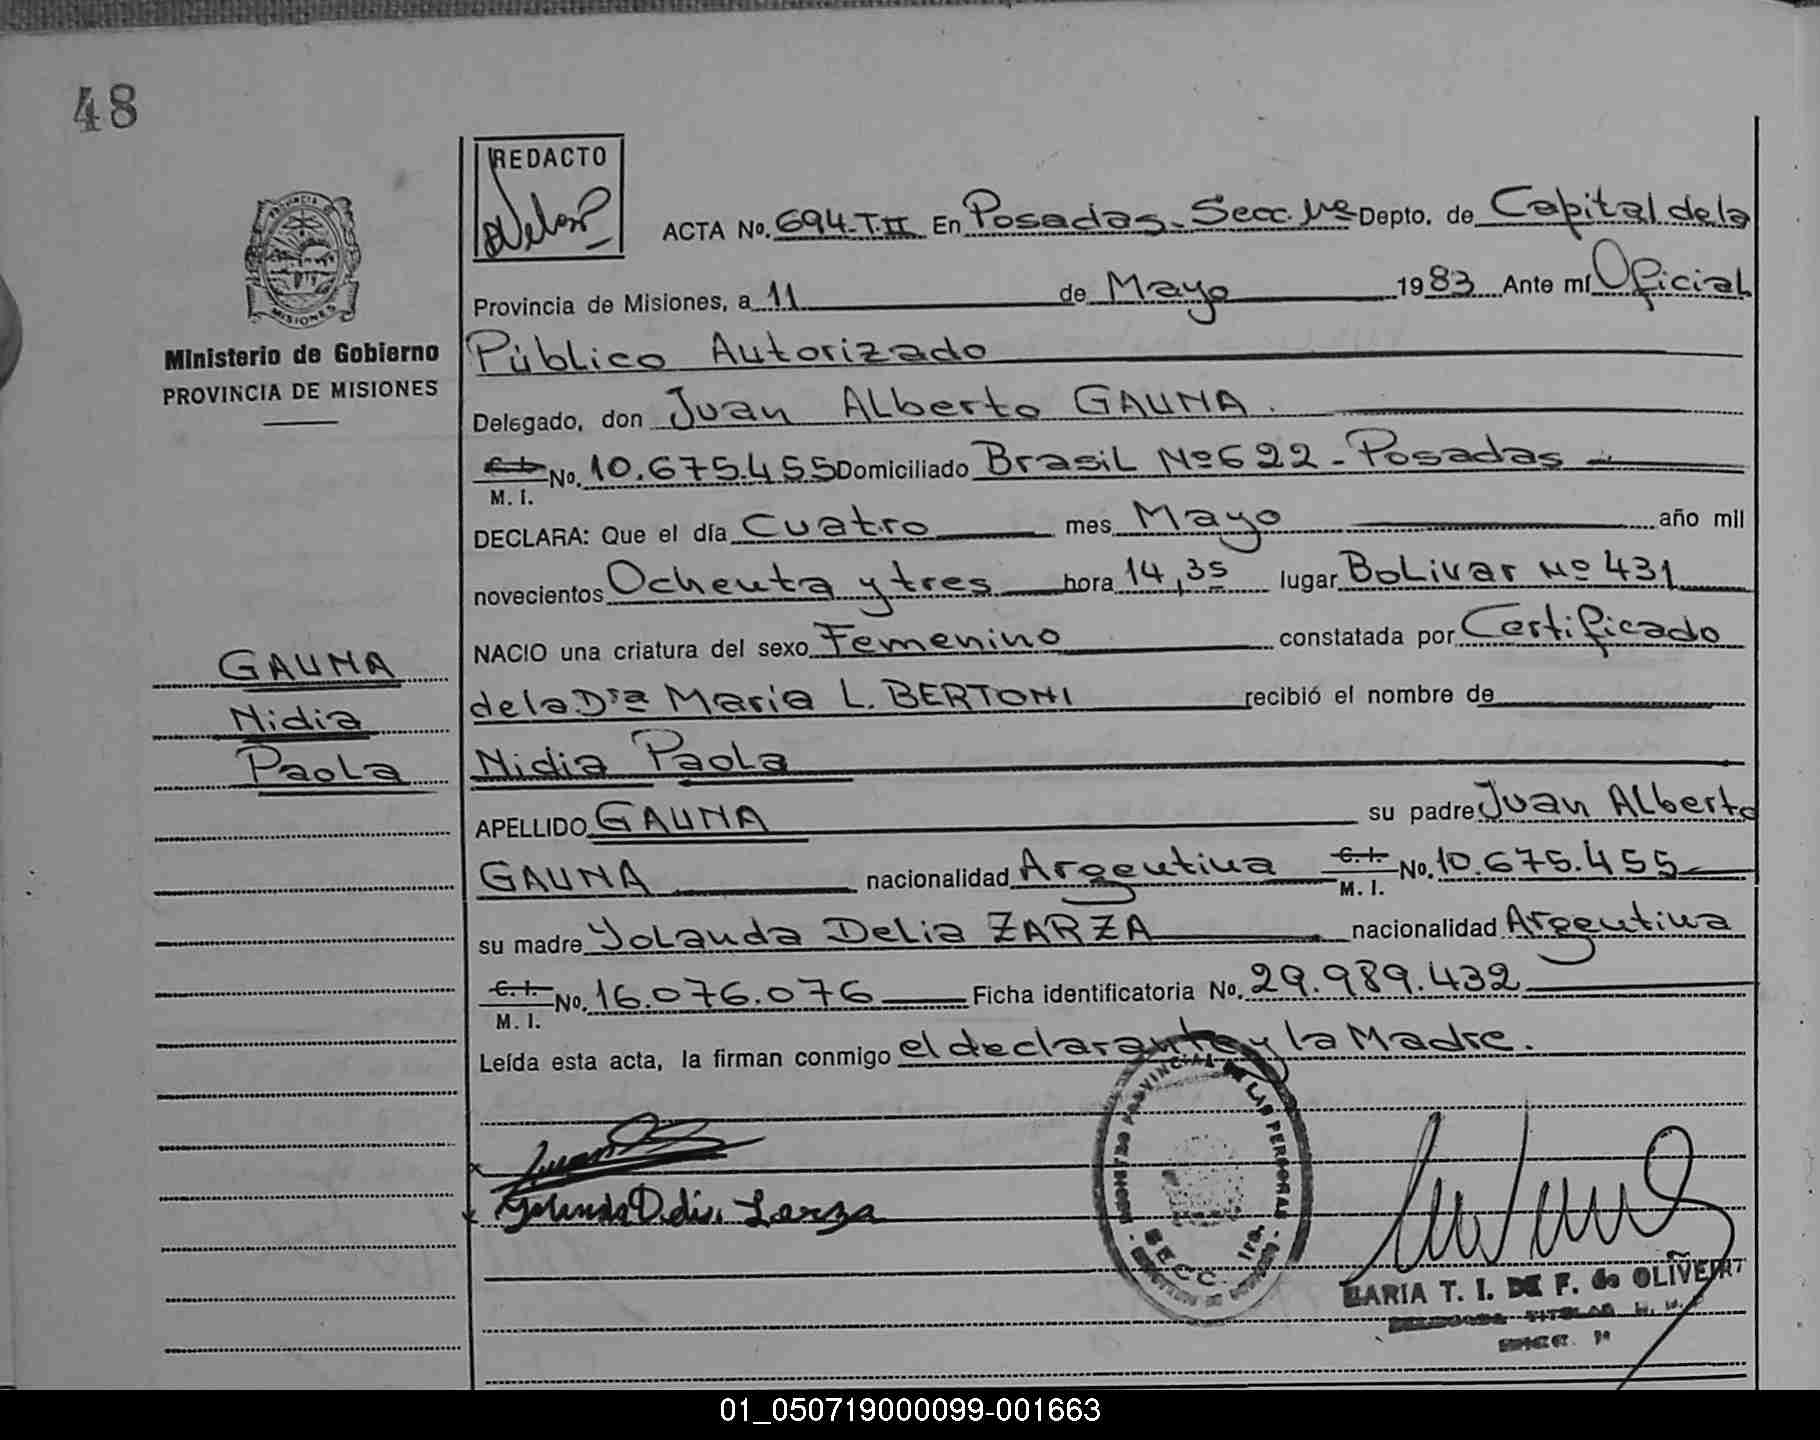 48
REDACTO
PROVINCIA
MISIONES
Ministerio de Gobierno
PROVINCIA DE MISIONES
ACTA No. 694-T.II En Posadas- Secc. 1ra Depto. de Capital de la
Provincia de Misiones, a 11 de Mayo 1983 Ante mí Oficial
Público Autorizado
Delegado, don Juan Alberto GAUNA.
C.I. No. 10.675.455 Domiciliado Brasil Nº 622 - Posadas
M. I.
DECLARA: Que el día Cuatro mes Mayo año mil
novecientos Ochenta y tres hora 14,35 lugar Bolivar Nº 431
NACIO una criatura del sexo Femenino constatada por Certificado
de la Dra Maria L. BERTONI recibió el nombre de
Nidia Paola
GAUNA
Nidia
Paola
APELLIDO GAUNA su padre Juan Alberto
GAUNA nacionalidad Argentina C.I. No. 10.675.455
M. I.
su madre Yolanda Delia ZARZA nacionalidad Argentina
C.I. No. 16.076.076 Ficha identificatoria No. 29.989.432
M. I.
Leída esta acta, la firman conmigo el declarante y la Madre.
REGISTRO PROVINCIAL DE LAS PERSONAS
SECC. 1ra.
Yolanda Delia Zarza
MARIA T. I. DE F. de OLIVEIRA
DELEGADA TITULAR
SECC. 1ª
01_050719000099-001663